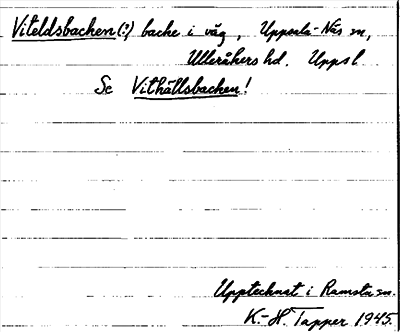 Viteldsbacken(?) backe i väg, Uppsala-Näs sn,
Ulleråkers hd. Uppsl
Se Vithällsbacken!
Upptecknat i Ramsta sn.
K.-H. Tapper 1945.